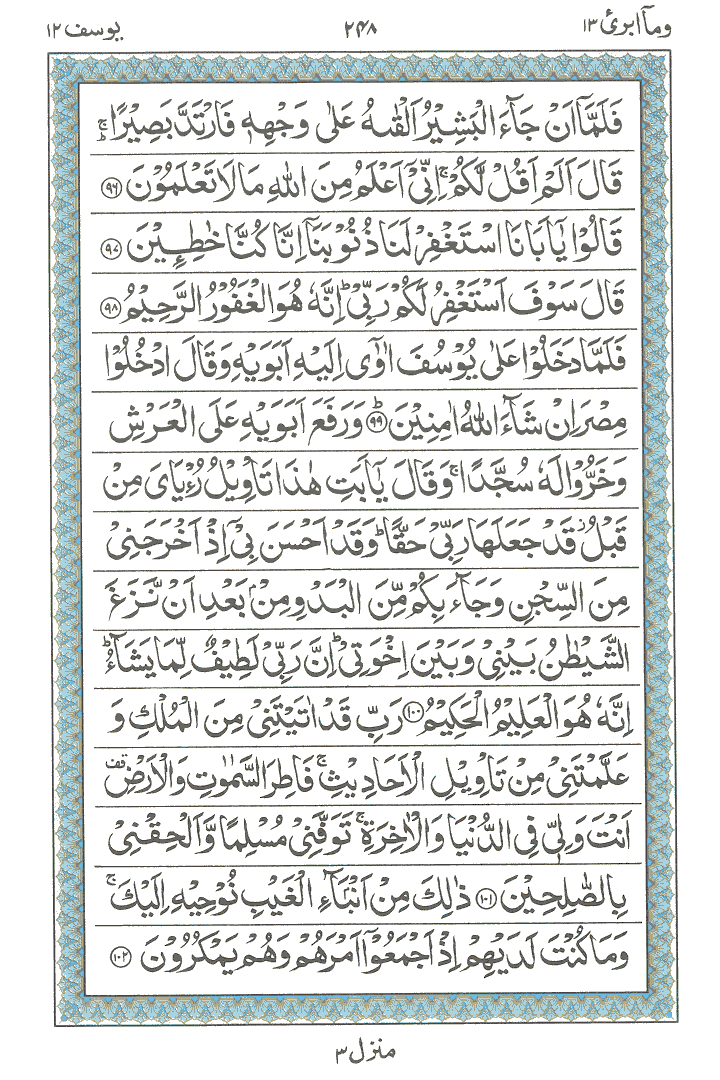 ومآ ابرئ ١٣
٢٤٨
يوسف ١٢
فَلَمَّآ اَنۡ جَآءَ الۡبَشِيۡرُ اَلۡقٰٮهُ عَلٰى وَجۡهِهٖ فَارۡتَدَّ بَصِيۡرًا ۚ ؕ
قَالَ اَلَمۡ اَقُلۡ لَّكُمۡ ۚ اِنِّىۡۤ اَعۡلَمُ مِنَ اللّٰهِ مَا لَا تَعۡلَمُوۡنَ ﴿۹۶﴾
قَالُوۡا يٰۤاَبَانَا اسۡتَغۡفِرۡ لَنَا ذُنُوۡبَنَاۤ اِنَّا كُنَّا خٰطِـئِيۡنَ ﴿۹۷﴾
قَالَ سَوۡفَ اَسۡتَغۡفِرُ لَـكُمۡ رَبِّىۡ ؕ اِنَّهٗ هُوَ الۡغَفُوۡرُ الرَّحِيۡمُ ﴿۹۸﴾
فَلَمَّا دَخَلُوۡا عَلٰى يُوۡسُفَ اٰوٰٓى اِلَيۡهِ اَبَوَيۡهِ وَقَالَ ادۡخُلُوۡا
مِصۡرَ اِنۡ شَآءَ اللّٰهُ اٰمِنِيۡنَ ؕ ﴿۹۹﴾ وَرَفَعَ اَبَوَيۡهِ عَلَى الۡعَرۡشِ
وَخَرُّوۡا لَهٗ سُجَّدًا ۚ وَقَالَ يٰۤاَبَتِ هٰذَا تَاۡوِيۡلُ رُءۡيَاىَ مِنۡ
قَبۡلُ ۫ قَدۡ جَعَلَهَا رَبِّىۡ حَقًّا ؕ وَقَدۡ اَحۡسَنَ بِىۡۤ اِذۡ اَخۡرَجَنِىۡ
مِنَ السِّجۡنِ وَجَآءَ بِكُمۡ مِّنَ الۡبَدۡوِ مِنۡۢ بَعۡدِ اَنۡ نَّزَغَ
الشَّيۡطٰنُ بَيۡنِىۡ وَبَيۡنَ اِخۡوَتِىۡ ؕ اِنَّ رَبِّىۡ لَطِيۡفٌ لِّمَا يَشَآءُ ؕ
اِنَّهٗ هُوَ الۡعَلِيۡمُ الۡحَكِيۡمُ ﴿۱۰۰﴾ رَبِّ قَدۡ اٰتَيۡتَنِىۡ مِنَ الۡمُلۡكِ وَ
عَلَّمۡتَنِىۡ مِنۡ تَاۡوِيۡلِ الۡاَحَادِيۡثِ ۚ فَاطِرَ السَّمٰوٰتِ وَالۡاَرۡضِ ۟قف
اَنۡتَ وَلِىّٖ فِى الدُّنۡيَا وَالۡاٰخِرَةِ ۚ تَوَفَّنِىۡ مُسۡلِمًا وَّاَلۡحِقۡنِىۡ
بِالصّٰلِحِيۡنَ ﴿۱۰۱﴾ ذٰلِكَ مِنۡ اَنۡۢبَآءِ الۡغَيۡبِ نُوۡحِيۡهِ اِلَيۡكَ ۚ
وَمَا كُنۡتَ لَدَيۡهِمۡ اِذۡ اَجۡمَعُوۡۤا اَمۡرَهُمۡ وَهُمۡ يَمۡكُرُوۡنَ ﴿۱۰۲﴾
منزل ٣